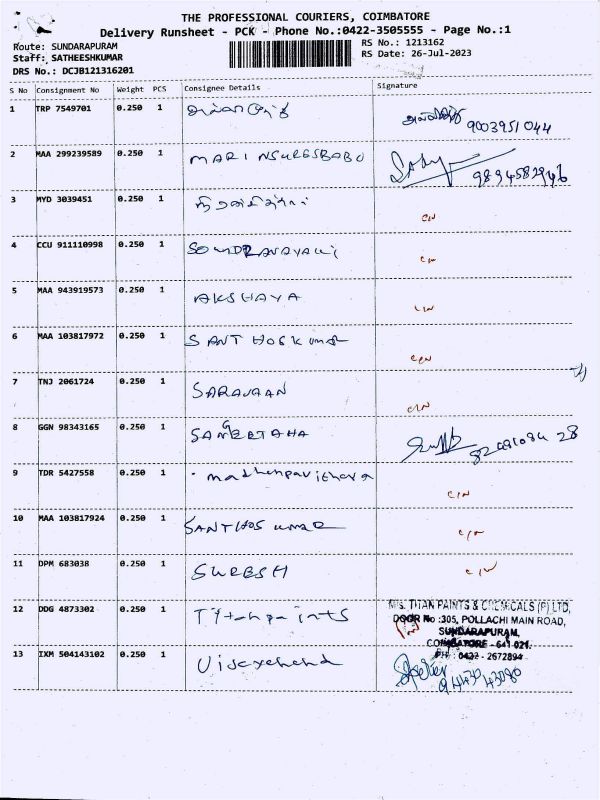 THE PROFESSIONAL COURIERS, COIMBATORE
Delivery Runsheet - PCK - Phone No.:0422-3505555 - Page No.:1
Route: SUNDARAPURAM
RS No.: 1213162
Staff: SATHEESHKUMAR
RS Date: 26-Jul-2023
DRS No.: DCJB121316201
S No Consignment No Weight PCS Consignee Details Signature
1 TRP 7549701 0.250 1 9003951044
2 MAA 299239589 0.250 1 MARI NSURESBABU 9894582946
3 MYD 3039451 0.250 1 C/N
4 CCU 911110998 0.250 1 C/N
5 MAA 943919573 0.250 1 AKSHAYA C/N
6 MAA 103817972 0.250 1 SANTHOSKUMAR C/N
7 TNJ 2061724 0.250 1 SARAVAAN C/N
8 GGN 98343165 0.250 1 SANGEETAHA
9 TDR 5427558 0.250 1 madhenpavithara C/N
10 MAA 103817924 0.250 1 SANTHOS KUMAR C/N
11 DPM 683038 0.250 1 SURESH C/N
12 DDG 4873302 0.250 1 Tiftanpaints
M/s. TITAN PAINTS & CHEMICALS (P) LTD,
DOOR No :305, POLLACHI MAIN ROAD,
SUNDARAPURAM,
COIMBATORE - 641 021.
PH : 0422 - 2672894
13 IXM 504143102 0.250 1